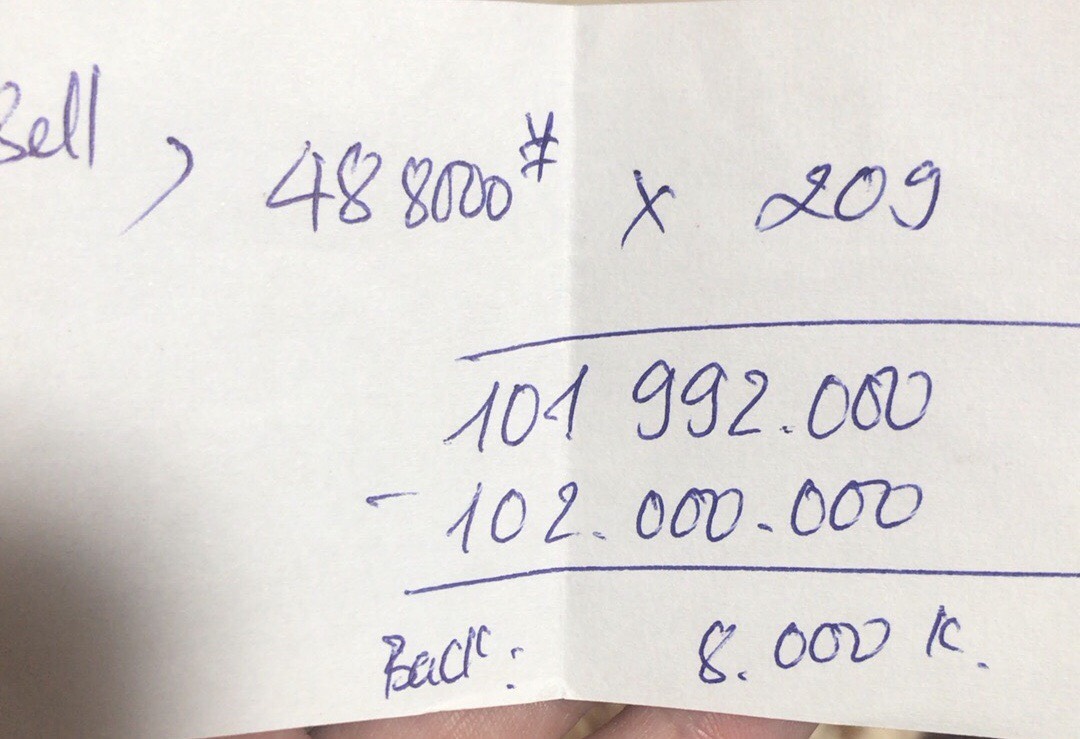 Sell > 488000¥ x 209
101 992.000
- 102.000.000
Back: 8.000 K.